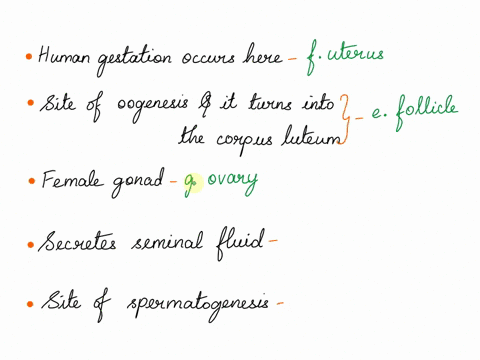 • Human gestation occurs here - f. uterus
• Site of oogenesis & it turns into
the corpus luteum } - e. follicle
• Female gonad - g. ovary
• Secretes seminal fluid -
• Site of spermatogenesis -